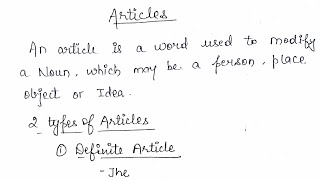 Articles
An article is a word used to modify
a Noun, which may be a person, place
object or Idea.
2 types of Articles
① Definite Article
- The